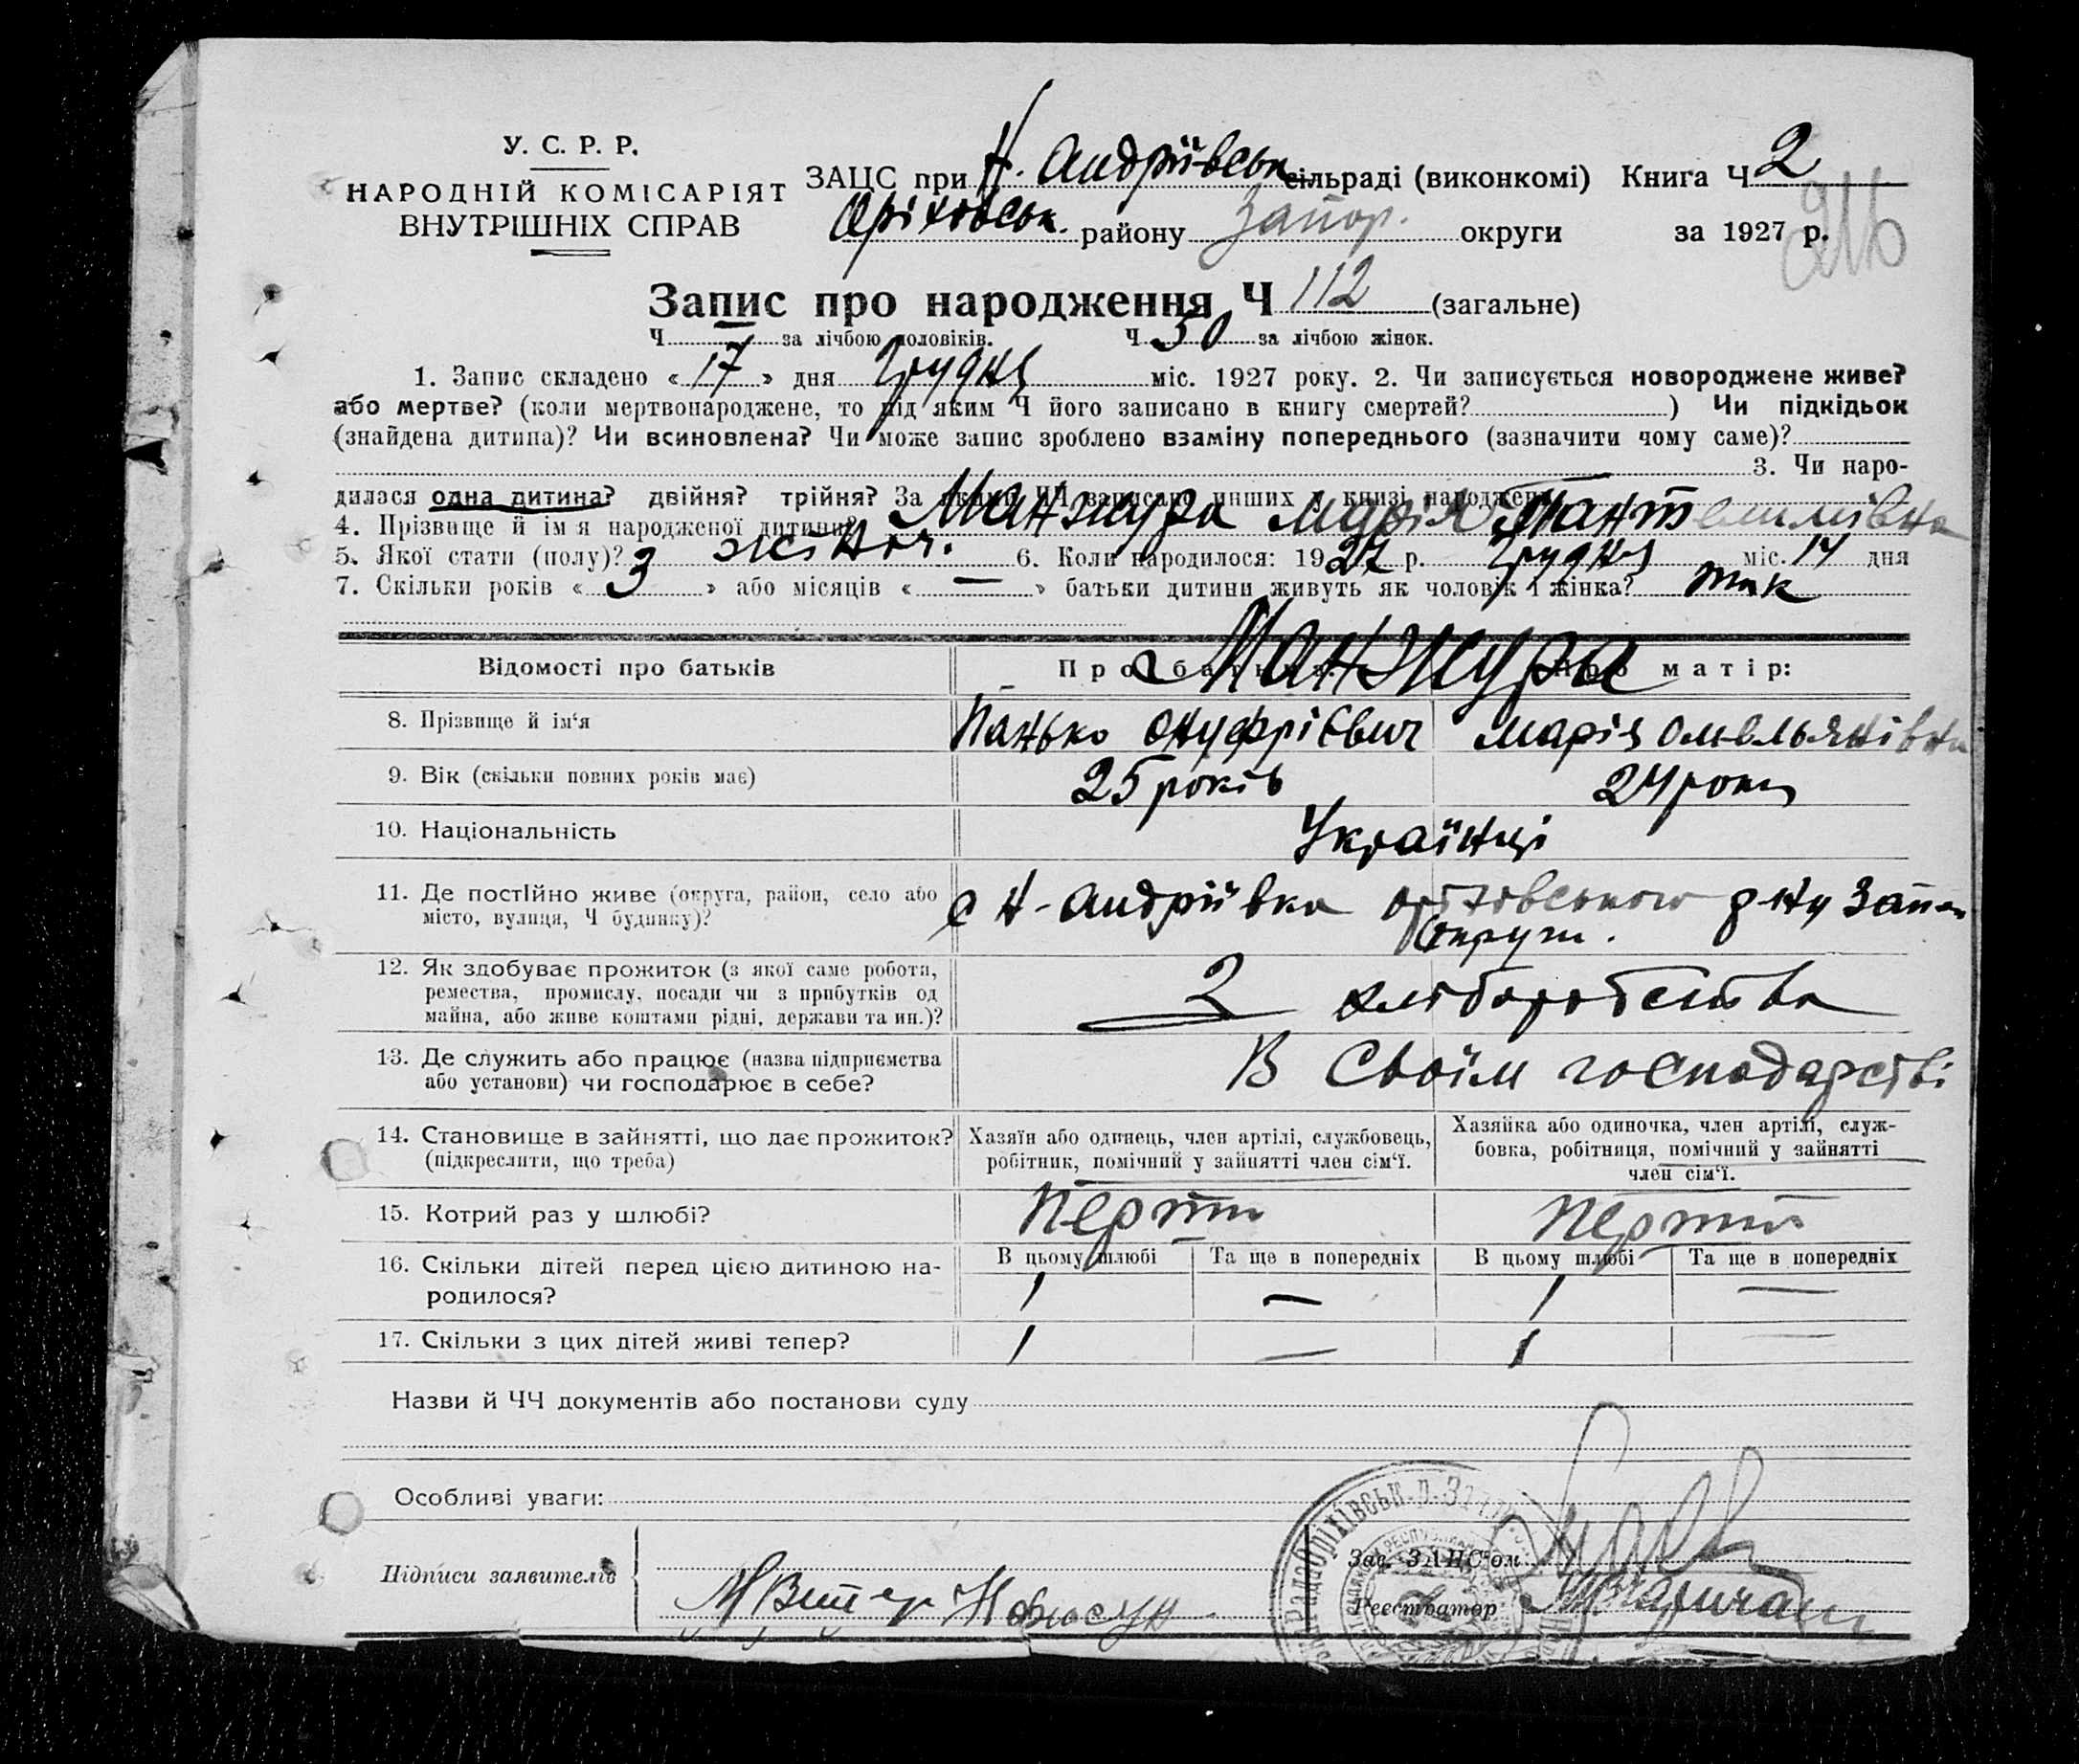 У. С. Р. Р.
НАРОДНІЙ КОМІСАРІЯТ
ВНУТРІШНІХ СПРАВ
ЗАЦС при Н. Андріївськ сільраді (виконкомі) Книга Ч 2
Оріхівськ. району Запор. округи за 1927 р.
Запис про народження Ч 112 (загальне)
Ч за лічбою чоловіків. Ч 50 за лічбою жінок.
1. Запис складено « 17 » дня Грудня міс. 1927 року. 2. Чи записується новороджене живе?
або мертве? (коли мертвонароджене, то під яким Ч його записано в книгу смертей? ) Чи підкідьок
(знайдена дитина)? Чи всиновлена? Чи може запис зроблено взаміну попереднього (зазначити чому саме)?
3. Чи наро-
дилася одна дитина? двійня? трійня? За якими ЧЧ записано инших в книзі народжень
4. Прізвище й ім я народженої дитини? Манжура Марія
5. Якої стати (полу)? жіноч. 6. Коли народилося: 1927 р. Грудня міс. 14 дня
7. Скільки років « 3 » або місяців « — » батьки дитини живуть як чоловік і жінка? так
Відомості про батьків Про батька: Про матір:
Манжура
8. Прізвище й ім‘я Панько Онуфрієвич Марія Омельянівна
9. Вік (скільки повних років має) 25 років 24 роки
10. Національність Українці
11. Де постійно живе (округа, район, село або с Н-Андріївка Оріхівського р-ну Запор
місто, вулиця, Ч будинку)? округи.
12. Як здобуває прожиток (з якої саме роботи,
ремества, промислу, посади чи з прибутків од З хліборобства
майна, або живе коштами рідні, держави та ин.)?
13. Де служить або працює (назва підприємства В своїм господарстві
або установи) чи господарює в себе?
14. Становище в зайнятті, що дає прожиток? Хазяїн або одинець, член артілі, службовець, Хазяйка або одиночка, член артілі, служ-
(підкреслити, що треба) робітник, помічний у зайнятті член сім‘ї. бовка, робітниця, помічний у зайнятті
член сім‘ї.
15. Котрий раз у шлюбі? Перший Перший
16. Скільки дітей перед цією дитиною на- В цьому шлюбі Та ще в попередніх В цьому шлюбі Та ще в попередніх
родилося? 1 — 1 —
17. Скільки з цих дітей живі тепер? 1 — 1 —
Назви й ЧЧ документів або постанови суду
Особливі уваги:
Підписи заявителів
Зав. ЗАЦС‘ом
Реєстратор